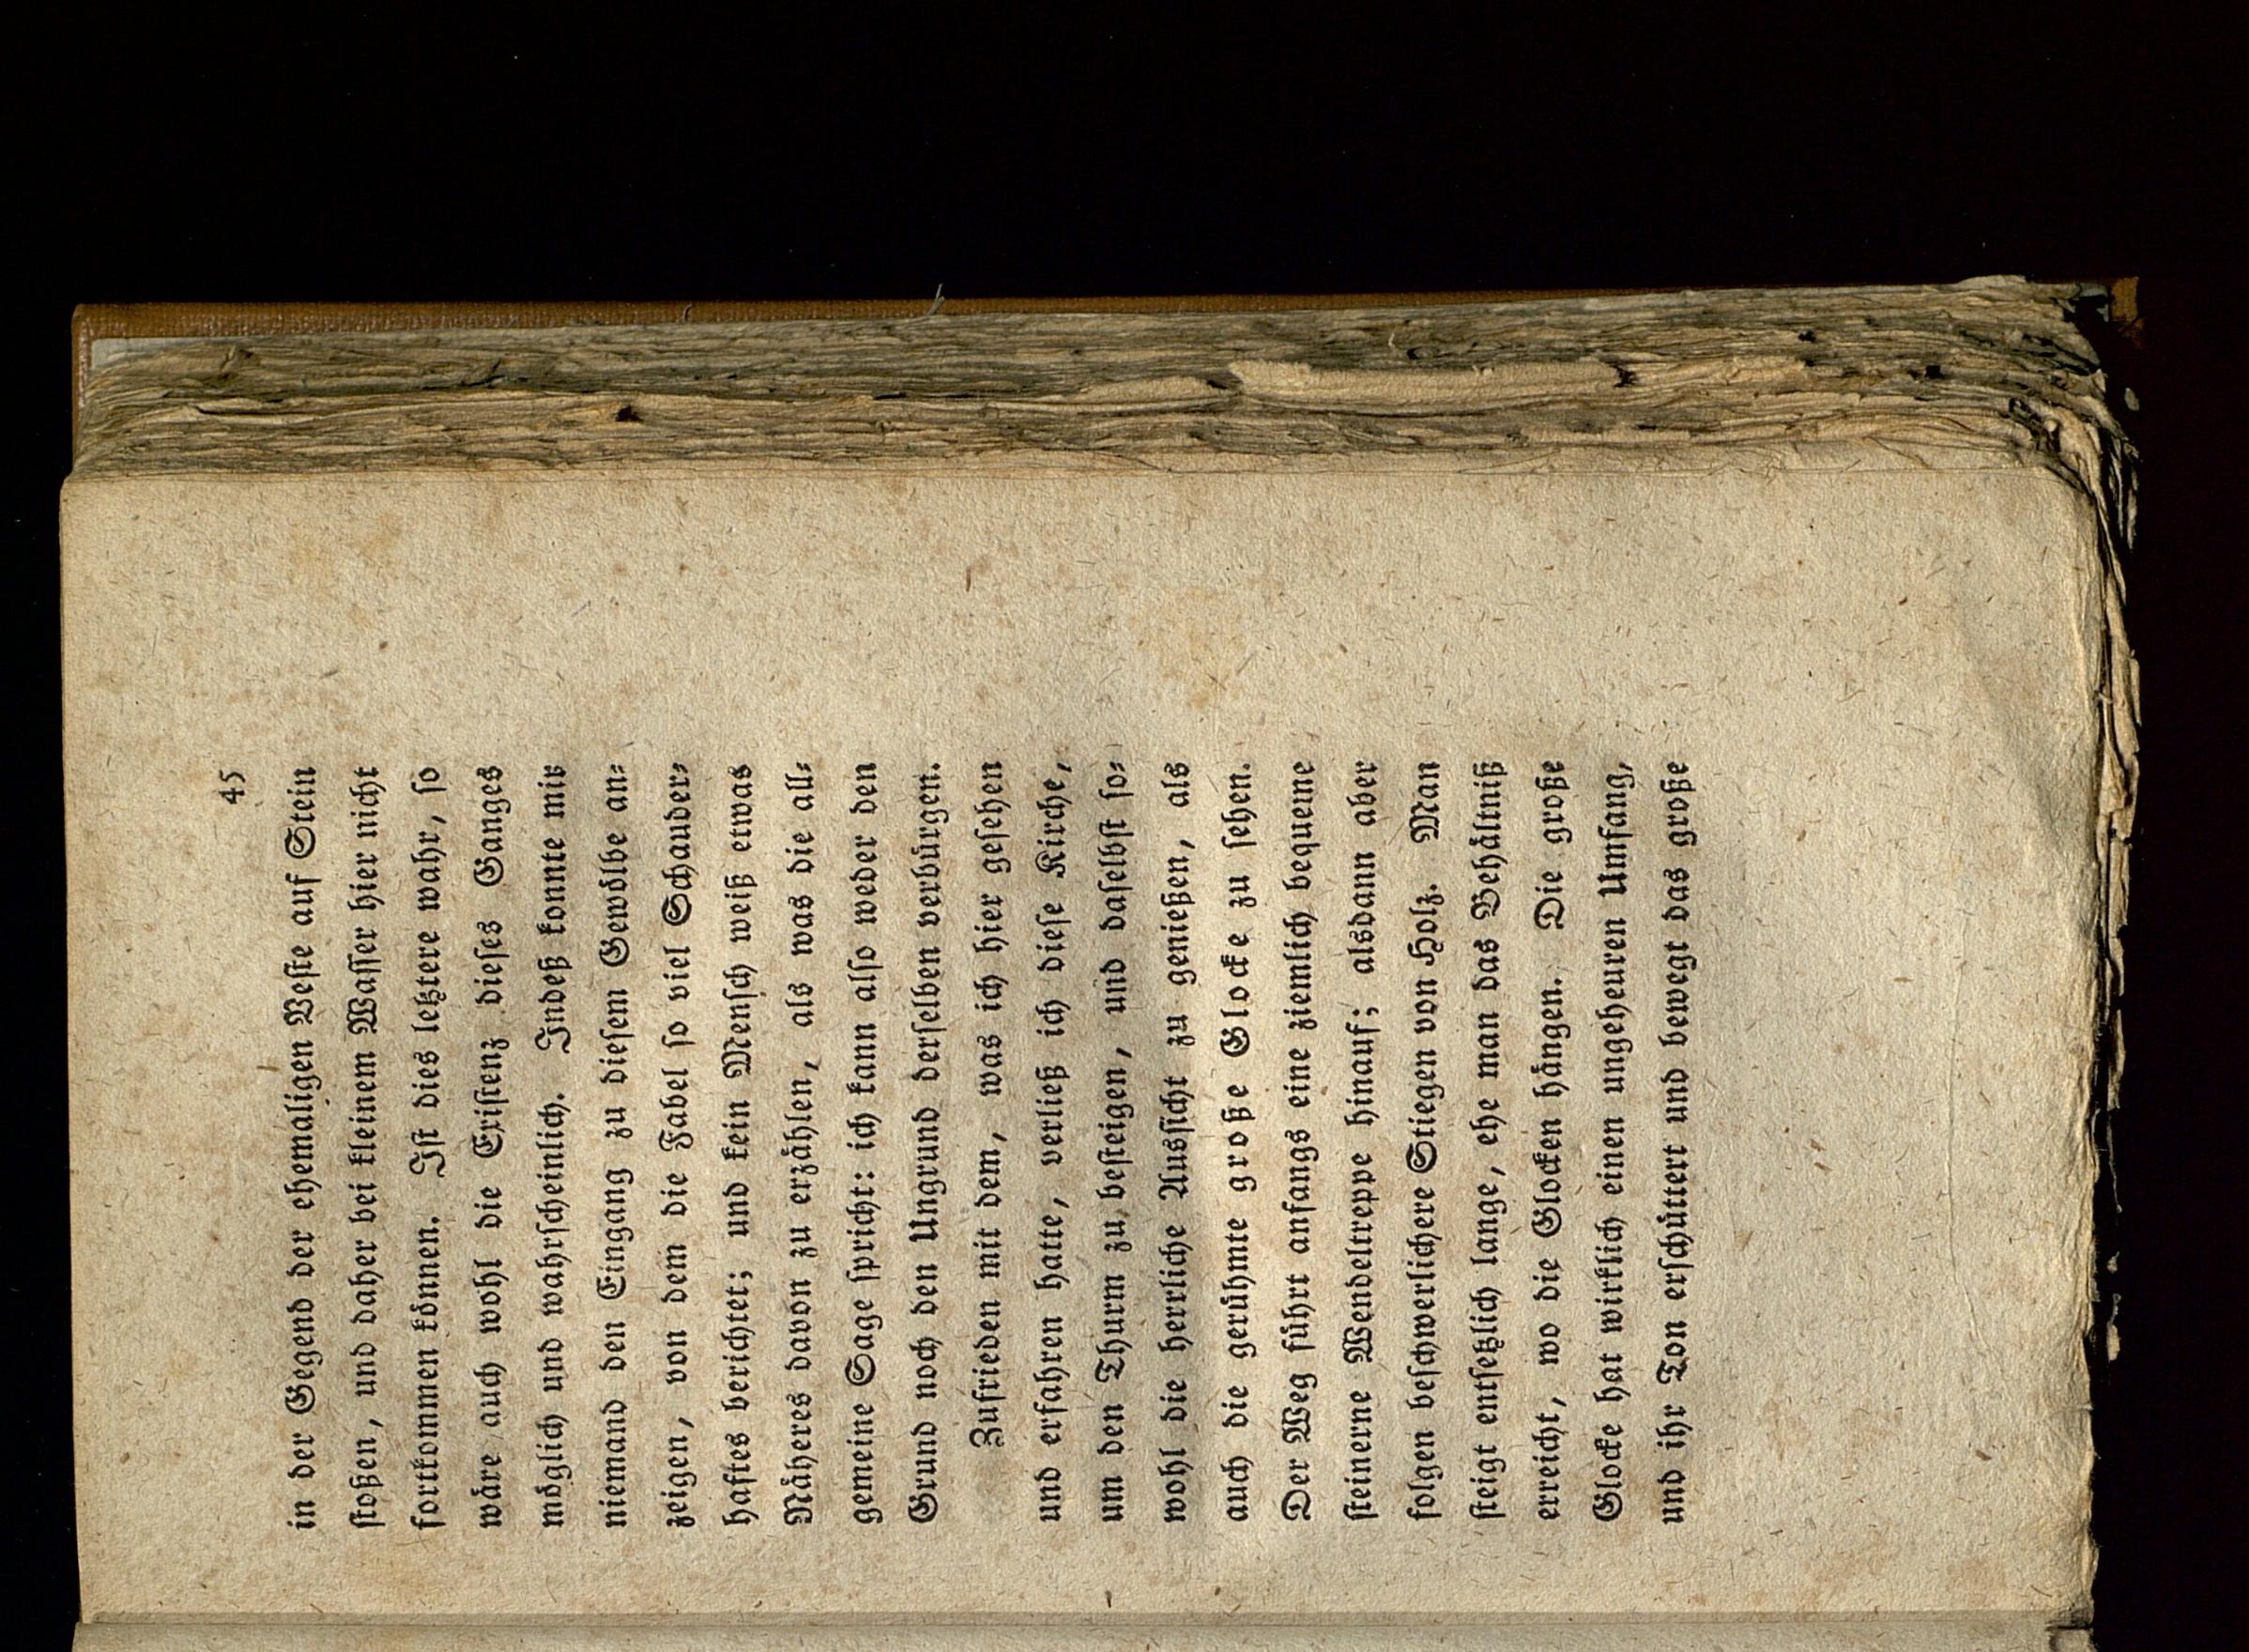 45
in der Gegend der ehemaligen Veste auf Stein
ſtoßen, und daher bei kleinem Waſſer hier nicht
fortkommen können. Iſt dies letztere wahr, ſo
wäre auch wohl die Exiſtenz dieſes Ganges
möglich und wahrſcheinlich. Indeß konnte mir
niemand den Eingang zu dieſem Gewölbe an⸗
zeigen, von dem die Fabel ſo viel Schauder⸗
haftes berichtet; und kein Menſch weiß etwas
Näheres davon zu erzählen, als was die all⸗
gemeine Sage ſpricht: ich kann alſo weder den
Grund noch den Ungrund derſelben verbürgen.
Zufrieden mit dem, was ich hier geſehen
und erfahren hatte, verließ ich dieſe Kirche,
um den Thurm zu beſteigen, und daſelbſt ſo⸗
wohl die herrliche Ausſicht zu genießen, als
auch die gerühmte große Glocke zu ſehen.
Der Weg führt anfangs eine ziemlich bequeme
ſteinerne Wendeltreppe hinauf; alsdann aber
folgen beſchwerlichere Stiegen von Holz. Man
ſteigt entſetzlich lange, ehe man das Behältniß
erreicht, wo die Glocken hängen. Die große
Glocke hat wirklich einen ungeheuren Umfang,
und ihr Ton erſchüttert und bewegt das große